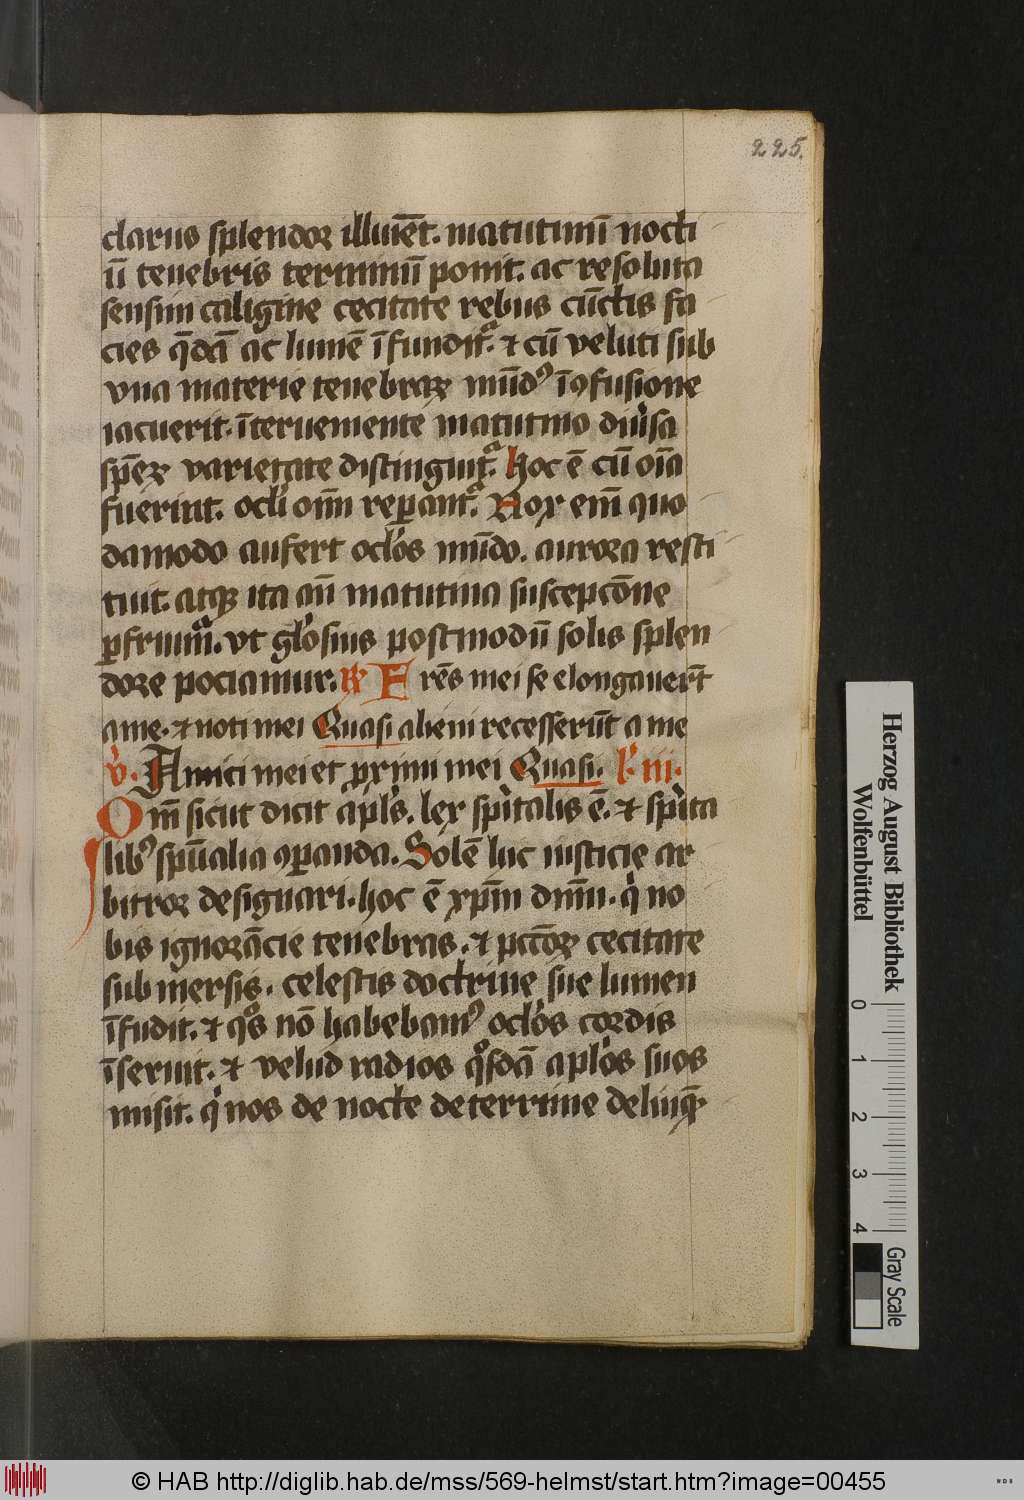 225.
clarus splendor illuxēt. matutinū nocti
ū tenebris terminū ponit. ac resoluta
sensim caligine cecitate rebus cūctis fa
cies q̄dā ac lumē īfundit᷑. ⁊ cū veluti sub
vna materie tenebraꝝ mūdꝰ īꝯfusione
iacuerit. īterueniente matutino diuͥsa
spēꝝ varietate distinguit᷑. hoc ē cū oīa
fuerint. ocl̓i om̄i reꝑant᷑. Nox em̄ quo
damodo aufert ocl̓os mūdo. aurora resti
tuit. atqꝫ ita aū matutina suscepcōne
ꝑfruim᷑. vt gl̓osius postmodū solis splen
dore pociamur. ꝶ Frēs mei se elongauerūt
a me. ⁊ noti mei Quasi alieni recesserūt a me
v̓. Amici mei et ꝓximi mei Quasi. l̓ iii.
Om̄ sicut dicit apl̓s. lex spiͥtalis ē. ⁊ spiͥta
libꝰ spūalia ꝯꝑanda. Solē hic iusticie ar
bitror designari. hoc ē xp̄m dnm̄. qͥ no
bis ignorācie tenebras. ⁊ pcc̄oꝝ cecitate
sub mersis. celestis doctrine sue lumen
īfudit. ⁊ qͦs nō habebamꝰ ocl̓os cordis
īseruit. ⁊ velud radios qͦsdā apl̓os suos
misit. qͥ nos de nocte deterrime delinqꝫ
Herzog August Bibliothek
Wolfenbüttel
0 1 2 3 4
Gray Scale
© HAB http://diglib.hab.de/mss/569-helmst/start.htm?image=00455